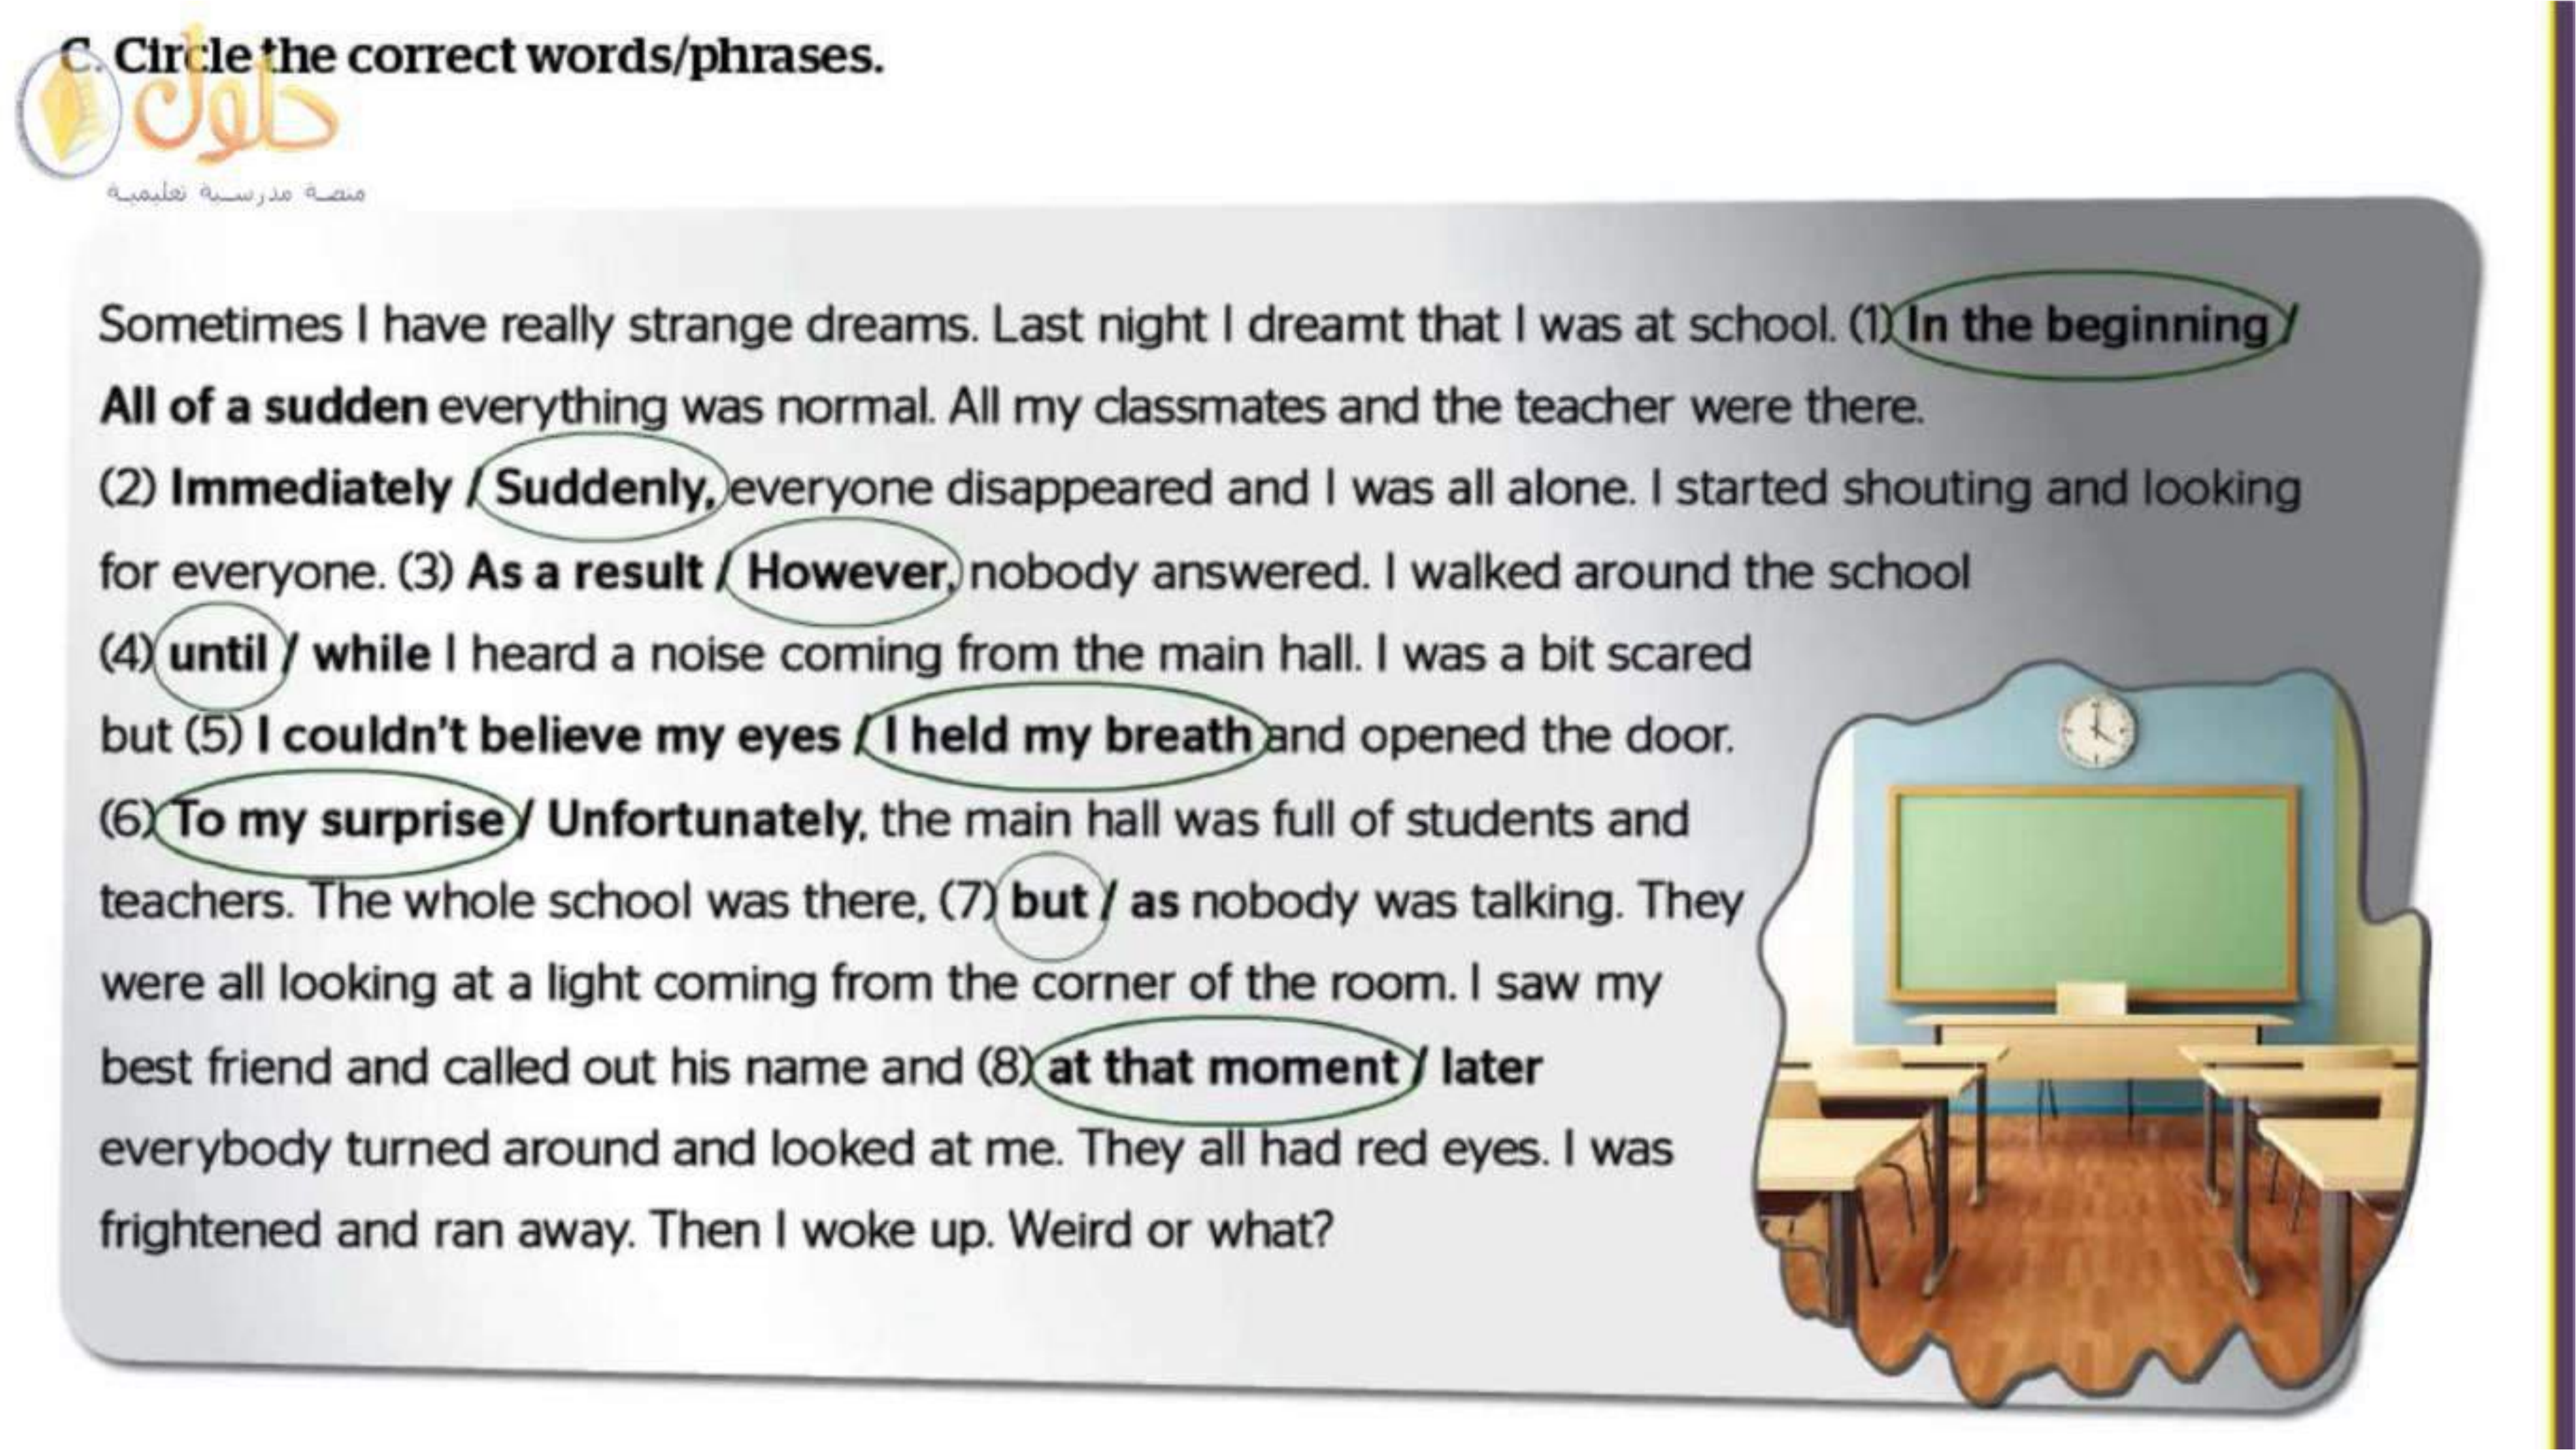 C. Circle the correct words/phrases.
حلول
منصة مدرسية تعليمية
Sometimes I have really strange dreams. Last night I dreamt that I was at school. (1) In the beginning /
All of a sudden everything was normal. All my classmates and the teacher were there.
(2) Immediately / Suddenly, everyone disappeared and I was all alone. I started shouting and looking
for everyone. (3) As a result / However, nobody answered. I walked around the school
(4) until / while I heard a noise coming from the main hall. I was a bit scared
but (5) I couldn't believe my eyes / I held my breath and opened the door.
(6) To my surprise / Unfortunately, the main hall was full of students and
teachers. The whole school was there, (7) but / as nobody was talking. They
were all looking at a light coming from the corner of the room. I saw my
best friend and called out his name and (8) at that moment / later
everybody turned around and looked at me. They all had red eyes. I was
frightened and ran away. Then I woke up. Weird or what?